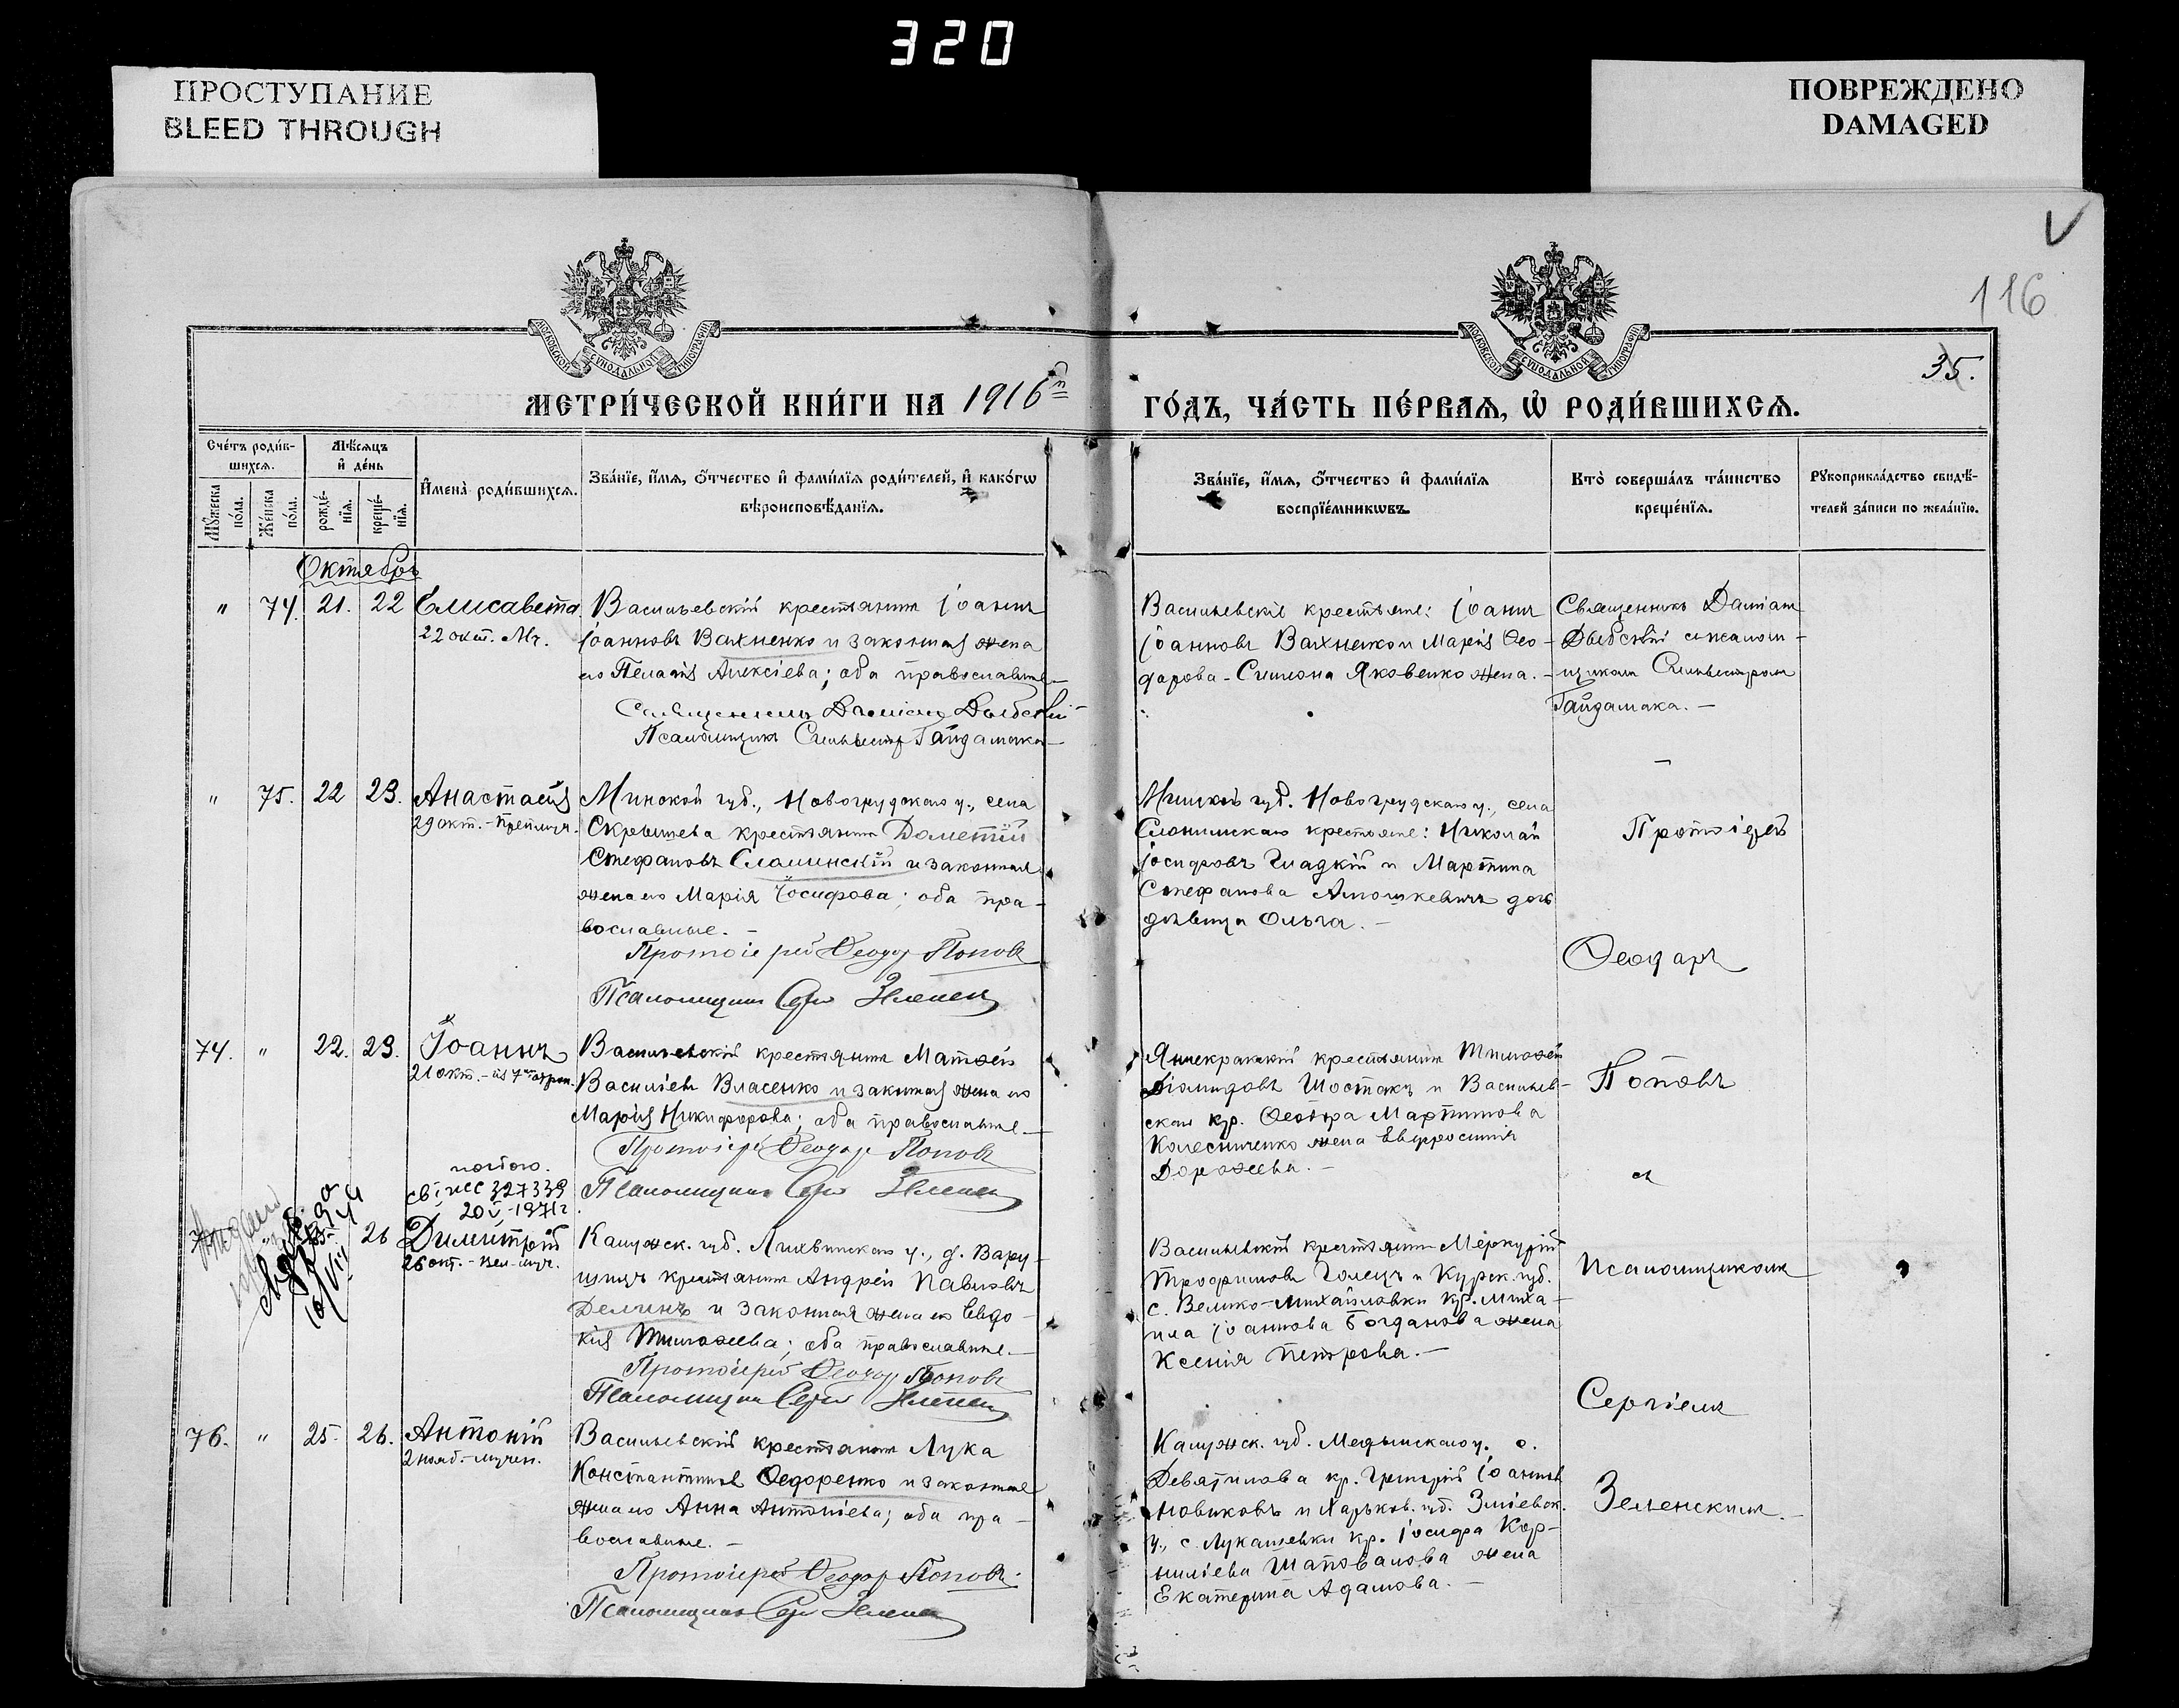 320
ПРОСТУПАНИЕ
BLEED THROUGH
ПОВРЕЖДЕНО
DAMAGED
116
35.
МОСКОВСКОЙ СѴНОДАЛЬНОЙ ТИПОГРАФІИ
МОСКОВСКОЙ СѴНОДАЛЬНОЙ ТИПОГРАФІИ
МЕТРИ́ЧЕСКОЙ КНИ́ГИ НА 1916
ГО́ДЪ, ЧА́СТЬ ПЕ́РВАЯ, Ѡ РОДИ́ВШИХСЯ.
Сче́тъ роди́в-
шихся.
Мѣ́сяцъ
и де́нь
Му́жеска
по́ла.
Же́нска
по́ла.
рожде́-
нїя.
креще́-
нїя.
Имена̀ роди́вшихся.
Зва́нїе, и́мя, о́тчество и фами́лїя роди́телей, и како́гѡ
вѣроисповѣ́данїя.
Зва́нїе, и́мя, о́тчество и фами́лїя
воспрїе́мникѡвъ.
Кто̀ соверша́лъ та́инство
креще́нїя.
Рꙋкоприкла́дство свидѣ́-
телей за́писи по жела́нїю.
Октябрь
" 74. 21. 22 Елисавета
22 окт. Мч.
Васильевскій крестьянинъ Іоаннъ
Іоанновъ Вахненко и законная жена
его Пелагія Алексіева; оба православные
Священникъ Даміанъ Дыбскій
Псаломщикъ Сильвестръ Гайдамака
Васильевскіе крестьяне: Іоаннъ
Іоанновъ Вахненко и Марія Ѳео-
дорова - Симеона Яковенко жена. -
Священникъ Даміанъ
Дыбскій съ псалом-
щикомъ Сильвестромъ
Гайдамака. -
" 75. 22 23. Анастасія
29 окт. - Преп.муч.
Минской губ., Новогрудскаго у., села
крестьянинъ Дометій
Стефановъ Сламинскій и законная
жена его Марія Іосифова; оба пра-
вославные. -
Протоіерей Ѳеодоръ Поповъ
Псаломщикъ Зеленск
Минской губ. Новогрудскаго у., села
крестьяне: Николай
Іосифовъ Гладкій и Мартина
Стефанова дочь
дѣвица Ольга. -
Протоіерей
Ѳеодоръ
74. " 22. 23. Іоаннъ
21 окт.
Васильевскій крестьянинъ Матѳей
Василіевъ Власенко и законная жена его
Марія Никифорова; оба православные. -
Протоіерей Ѳеодоръ Поповъ
Псаломщикъ Зеленск
Янчекракскій крестьянинъ Тимоѳей
Діомидовъ Шостакъ и Васильев-
скаго кр. Мартинова
Колесниченко жена Евфросинія
Дороѳеева. -
Поповъ
съ
повтор.
327339
20 V - 1971 г
26 Димитрій
26 окт. - Вел-муч.
Калужск. губ. Лихвинскаго у., д. Вару-
крестьянинъ Андрей Павловъ
Деминъ и законная жена его Евдо-
кія Тимоѳеева; оба православные. -
Протоіерей Ѳеодоръ Поповъ
Псаломщикъ Зеленск
Васильевскій крестьянинъ Меркурій
Трофимовъ Голецъ и Курск. губ.
с. Велико-Михайловки кр. Миха-
ила Іоаннова Богданова жена
Ксенія Петрова. -
Псаломщикомъ
Сергіемъ
76. " 25. 26. Антоній
2 нояб. - мучен.
Васильевскій крестьянинъ Лука
Константиновъ Ѳедоренко и законная
жена его Анна Антоніева; оба пра-
вославные. -
Протоіерей Ѳеодоръ Поповъ.
Псаломщикъ Зеленск
Калужск. губ. Медынскаго у. с.
кр. Григорій Іоанновъ
Новиковъ и Харьков. губ. Зміевск.
у., с. Лукашевки кр. Іосифа Кор-
ниліева Шаповалова жена
Екатерина Адамова. -
Зеленскимъ. -